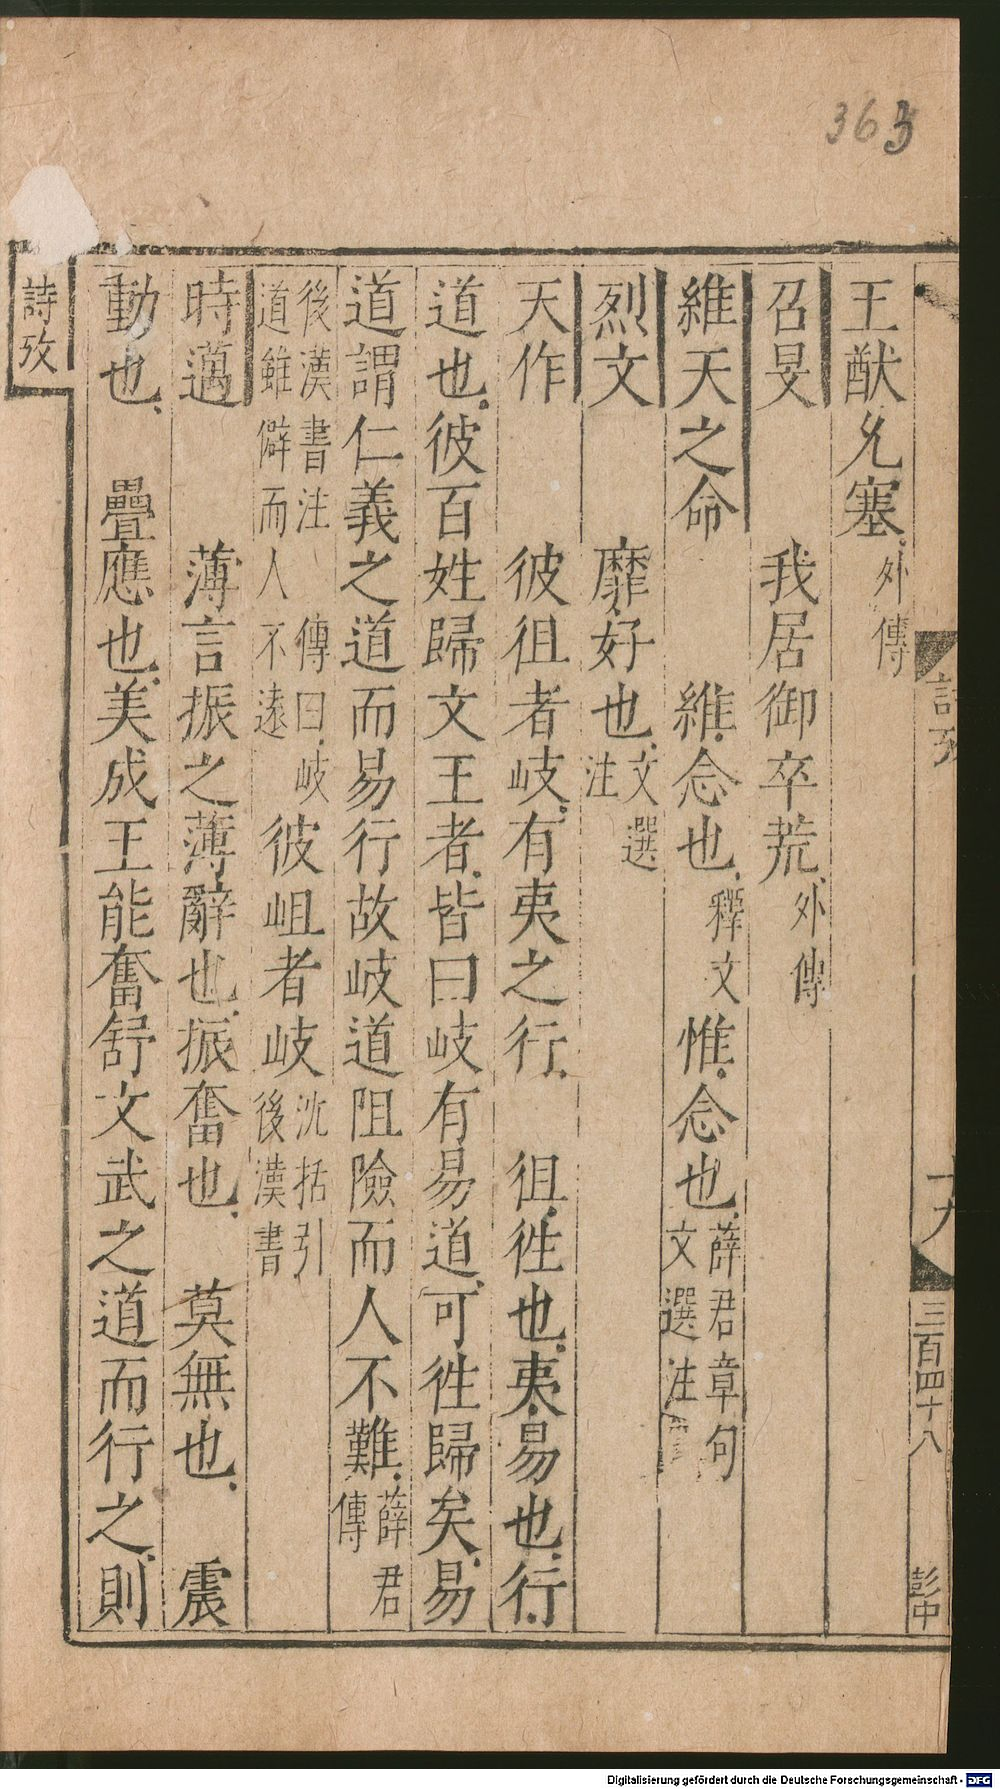 363
詩攷
十九
三百四十八
彭中
王猷允塞外傳
召旻　我居御卒荒外傳
維天之命　維念也釋文惟念也薛君章句文選注
烈文　靡好也文選注
天作　彼徂者岐有夷之行　徂徃也夷易也行
道也彼百姓歸文王者皆曰岐有易道可徃歸矣易
道謂仁義之道而易行故岐道阻險而人不難薛君傳
後漢書注　傳曰岐道雖僻而人不遠彼岨者岐沈括引後漢書
時邁　薄言振之薄辭也振奮也　莫無也　震
動也　疊應也美成王能奮舒文武之道而行之則
詩攷
Digitalisierung gefördert durch die Deutsche Forschungsgemeinschaft - DFG